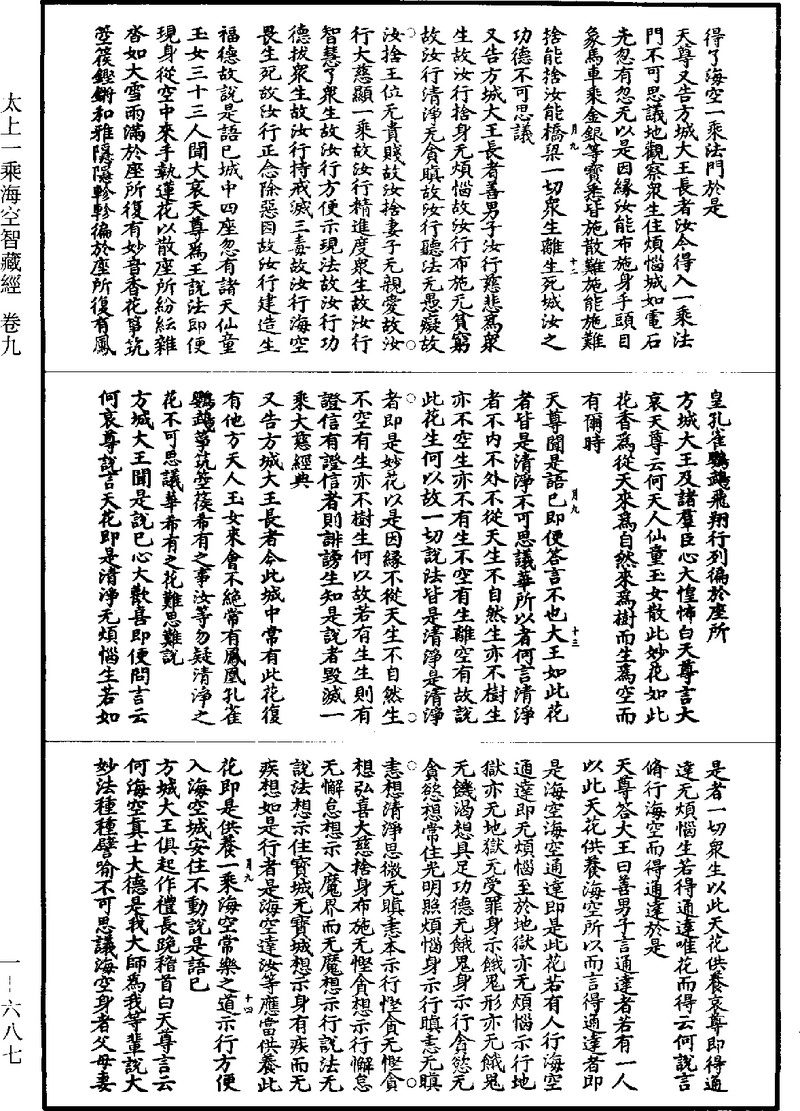 太上一乘海空智藏經　卷九
一－六八七
得了海空一乘法門於是
天尊又告方城大王長者汝今得入一乘法
門不可思議地觀察衆生住煩惱城如電石
无忽有忽无以是因緣汝能布施身手頭目
象馬車乘金銀等寳悉皆施散難施能施難
捨能捨汝能橋梁一切衆生離生死城汝之
功德不可思議
又告方城大王長者善男子汝行慈悲爲衆
生故汝行捨身无煩惱故汝行布施无貧窮
故汝行清淨无貪瞋故汝行聽法无愚癡故
汝捨王位无貴賤故汝捨妻子无親愛故汝
行大慈顯一乘故汝行精進度衆生故汝行
智慧了衆生故汝行方便示現法故汝行功
德拔衆生故汝行持戒滅三毒故汝行海空
畏生死故汝行正念除惡因故汝行建造生
福德故說是語已城中四座忽有諸天仙童
玉女三十三人聞大哀天尊爲王說法即便
現身從空中來手執蓮花以散座所紛紜雜
沓如大雪雨滿於座所復有妙音香花箏筑
箜篌鏗鏘和雅隱隱軫軫徧於座所復有鳳
皇孔雀鸚鵡飛翔行列徧於座所
方城大王及諸羣臣心大惶怖白天尊言大
哀天尊云何天人仙童玉女散此妙花如此
花香爲從天來爲自然來爲樹而生爲空而
有爾時
天尊聞是語已即便答言不也大王如此花
者皆是清淨不可思議華所以者何言清淨
者不内不外不從天生不自然生亦不樹生
亦不空生亦不有生不空有生離空有故說
此花生何以故一切說法皆是清淨是清淨
者即是妙花以是因緣不從天生不自然生
不空有生亦不樹生何以故若有生生則有
證信有證信者則誹謗生知是說者毀滅一
乘大慈經典
又告方城大王長者今此城中常有此花復
有他方天人玉女來會不絶常有鳳凰孔雀
鸚鵡箏筑箜篌希有之事汝等勿疑清淨之
花不可思議華希有之花難思難說
方城大王聞是說已心大歡喜即便問言云
何哀尊說言天花即是清淨无煩惱生若如
是者一切衆生以此天花供養哀尊即得通
達无煩惱生若得通達唯花而得云何說言
脩行海空而得通達於是
天尊答大王曰善男子言通達者若有一人
以此天花供養海空所以而言得通達者即
是海空海空通達即是此花若有人行海空
通達即无煩惱至於地獄亦无煩惱示行地
獄亦无地獄无受罪身示餓鬼形亦无餓鬼
无饑渴想具足功德无餓鬼身示行貪慾无
貪慾想常住光明照煩惱身示行瞋恚无瞋
恚想清淨思微无瞋恚本示行慳貪无慳貪
想弘喜大慈捨身布施无慳貪想示行懈怠
无懈怠想示入魔界而无魔想示行說法无
說法想示住寳城无寳城想示身有疾而无
疾想如是行者是海空達汝等應當供養此
花即是供養一乘海空常樂之道示行方便
入海空城安住不動說是語已
方城大王俱起作禮長跪稽首白天尊言云
何海空真士大德是我大師爲我等輩說大
妙法種種譬喻不可思議海空身者父母妻